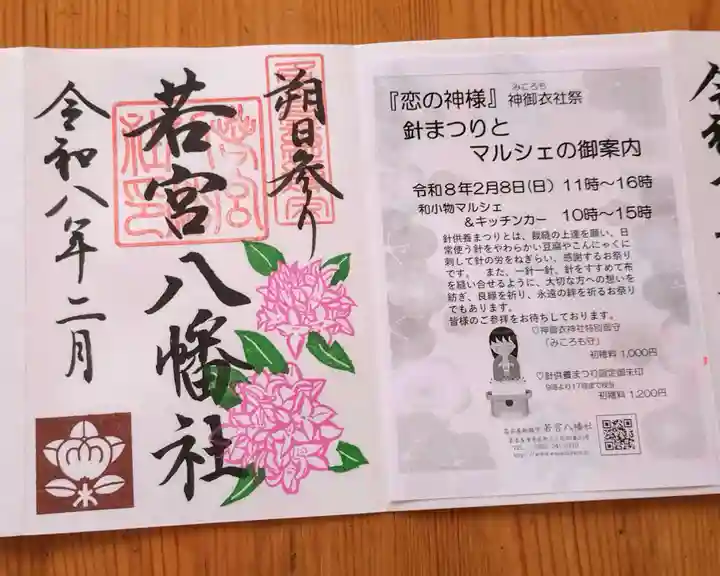 朔日参り
若宮八幡社
令和八年二月
みころも
『恋の神様』神御衣社祭
針まつりと
マルシェの御案内
令和8年2月8日(日) 11時〜16時
和小物マルシェ
&キッチンカー 10時〜15時
針供養まつりとは、裁縫の上達を願い、日
常使う針をやわらかい豆腐やこんにゃくに
刺して針の労をねぎらい、感謝するお祭り
です。 また、一針一針、針をすすめて布
を縫い合せるように、大切な方への想いを
紡ぎ、良縁を祈り、永遠の絆を祈るお祭り
でもあります。
皆様のご参拝をお待ちしております。
♡神御衣神社特別御守
「みころも守」
初穂料 1,000円
♡針供養まつり限定御朱印
9時より17時まで授与
初穂料 1,200円
若宮八幡社